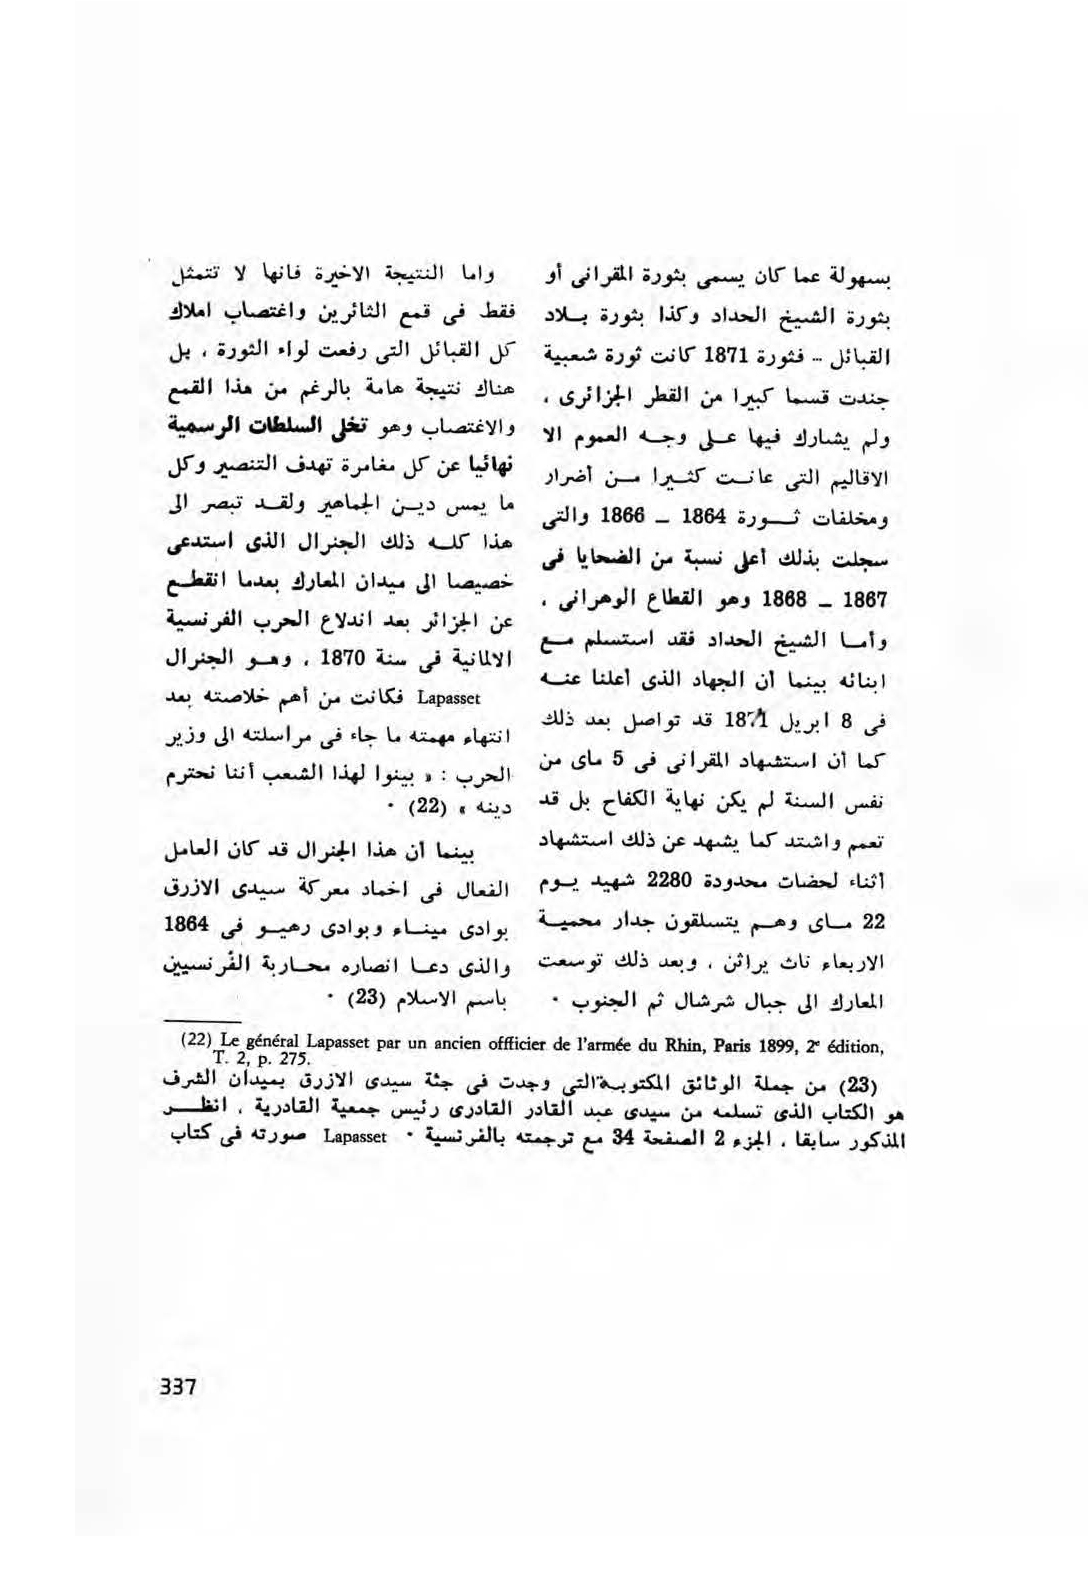 بسهولة عما كان يسمى بثورة المقرانى أو
بثورة الشيخ الحداد وكذا بثورة بلاد
القبائل .. فثورة 1871 كانت ثورة شعبية
جندت قسما كبيرا من القطر الجزائرى ،
ولم يشارك فيها على وجه العموم الا
الاقاليم التى عانت كثيرا من أضرار
ومخلفات ثورة 1864 – 1866 والتى
سجلت بذلك أعلى نسبة من الضحايا فى
1867 – 1868 وهو القطاع الوهرانى .
وأما الشيخ الحداد فقد استسلم مع
ابنائه بينما أن الجهاد الذى أعلنا عنه
فى 8 ابريل 1871 قد تواصل بعد ذلك
كما أن استشهاد المقرانى فى 5 ماى من
نفس السنة لم يكن نهاية الكفاح بل قد
تعمم واشتد كما يشهد عن ذلك استشهاد
أثناء لحضات محدودة 2280 شهيد يوم
22 ماى وهم يتسلقون جدار محمية
الاربعاء ناث يراثن ، وبعد ذلك توسعت
المعارك الى جبال شرشال ثم الجنوب ·
واما النتيجة الاخيرة فانها لا تتمثل
فقط فى قمع الثائرين واغتصاب املاك
كل القبائل التى رفعت لواء الثورة ، بل
هناك نتيجة هامة بالرغم من هذا القمع
والاغتصاب وهو تخلى السلطات الرسمية
نهائيا عن كل مغامرة تهدف التنصير وكل
ما يمس دين الجماهير ولقد تبصر الى
هذا كله ذلك الجنرال الذى استدعى
خصيصا الى ميدان المعارك بعدما انقطع
عن الجزائر بعد اندلاع الحرب الفرنسية
الالمانية فى سنة 1870 ، وهو الجنرال
Lapasset فكانت من أهم خلاصته بعد
انتهاء مهمته ما جاء فى مراسلته الى وزير
الحرب : « بينوا لهذا الشعب أننا نحترم
دينه » (22) ·
بينما أن هذا الجنرال قد كان العامل
الفعال فى اخماد معركة سيدى الازرق
بوادى ميناء وبوادى رهيو فى 1864
والذى دعا انصاره محاربة الفرنسيين
باسم الاسلام (23) ·
(22) Le général Lapasset par un ancien offficier de l'armée du Rhin, Paris 1899, 2e édition,
T. 2, p. 275.
(23) من جملة الوثائق المكتوبة التى وجدت فى جثة سيدى الازرق بميدان الشرف
هو الكتاب الذى تسلمه من سيدى عبد القادر القادرى رئيس جمعية القادرية ، انظر
صورته فى كتاب Lapasset المذكور سابقا ، الجزء 2 الصفحة 34 مع ترجمته بالفرنسية ·
337